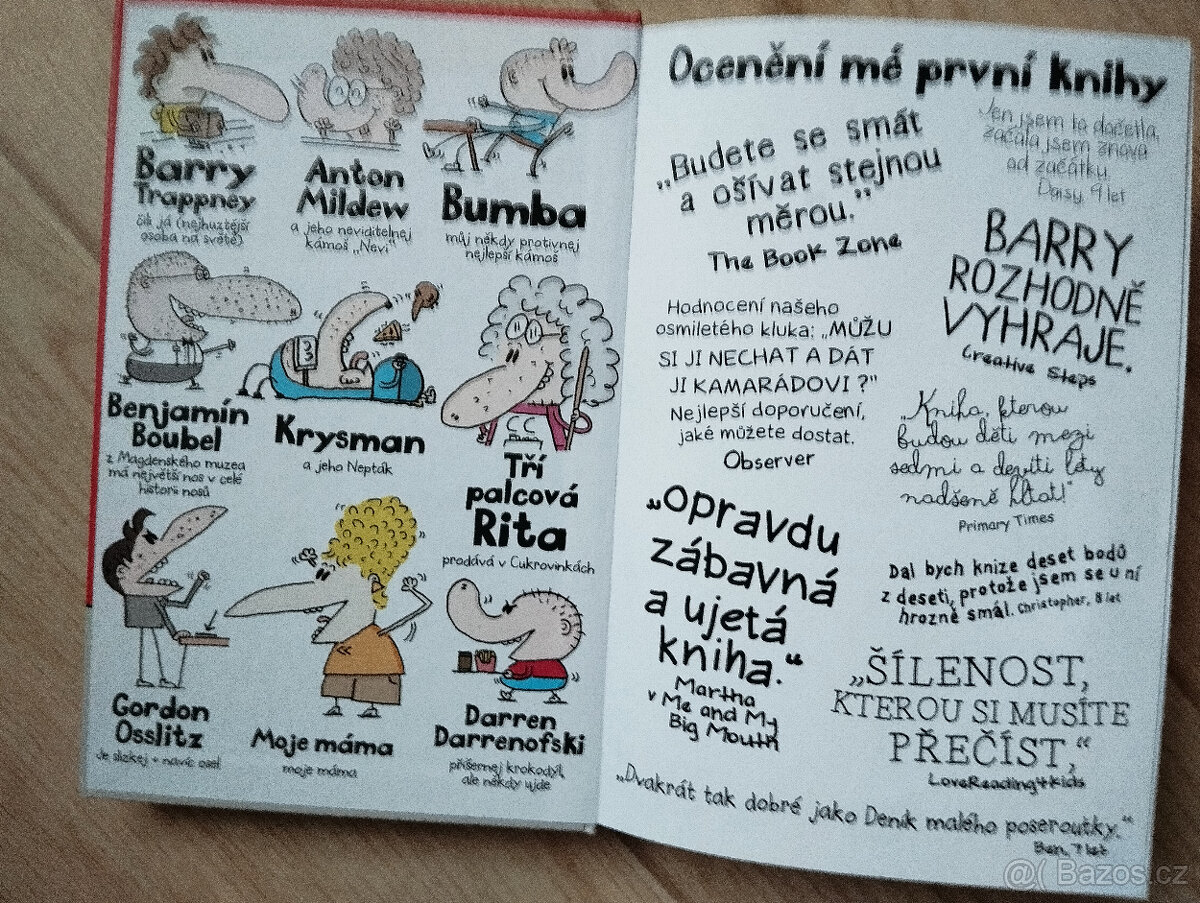 Barry
Trappney
čili já (nejhustější
osoba na světě)
Anton
Mildew
a jeho neviditelnej
kámoš „Nevi“
Bumba
můj někdy protivnej
nejlepší kámoš
Benjamín
Boubel
z Magdenského muzea
má největší nos v celé
historii nosů
3
Krysman
a jeho Nepták
Tří
palcová
Rita
prodává v Cukrovinkách
Gordon
Osslitz
Je slizkej + navíc osel
Moje máma
moje máma
Darren
Darrenofski
příšernej krokodýl,
ale někdy ujde
Ocenění mé první knihy
„Budete se smát
a ošívat stejnou
měrou.”
The Book Zone
Jen jsem to dočetla,
začala jsem znova
od začátku.
Daisy, 9 let
BARRY
ROZHODNĚ
VYHRAJE.
Creative Steps
Hodnocení našeho
osmiletého kluka: „MŮŽU
SI JI NECHAT A DÁT
JI KAMARÁDOVI ?"
Nejlepší doporučení,
jaké můžete dostat.
Observer
„Kniha, kterou
budou děti mezi
sedmi a devíti lety
nadšeně hltat!"
Primary Times
„opravdu
zábavná
a ujetá
kniha.“
Martha
v Me and My
Big Mouth
Dal bych knize deset bodů
z deseti, protože jsem se u ní
hrozně smál. Christopher, 8 let
„ŠÍLENOST,
KTEROU SI MUSÍTE
PŘEČÍST,“
LoveReading4kids
„Dvakrát tak dobré jako Deník malého poseroutky.“
Ben, 7 let
@( Bazos.cz